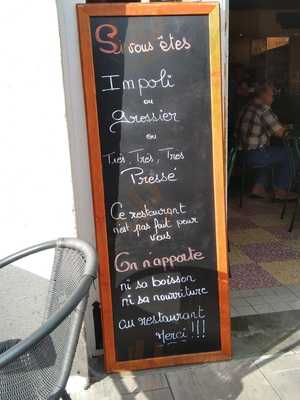 Si vous êtes
Impoli
ou
Grossier
ou
Très, Très, Tres
Pressé
Ce restaurant
n'est pas fait pour
vous
On n'apporte
ni sa boisson
ni sa nourriture
au restaurant
Merci !!!